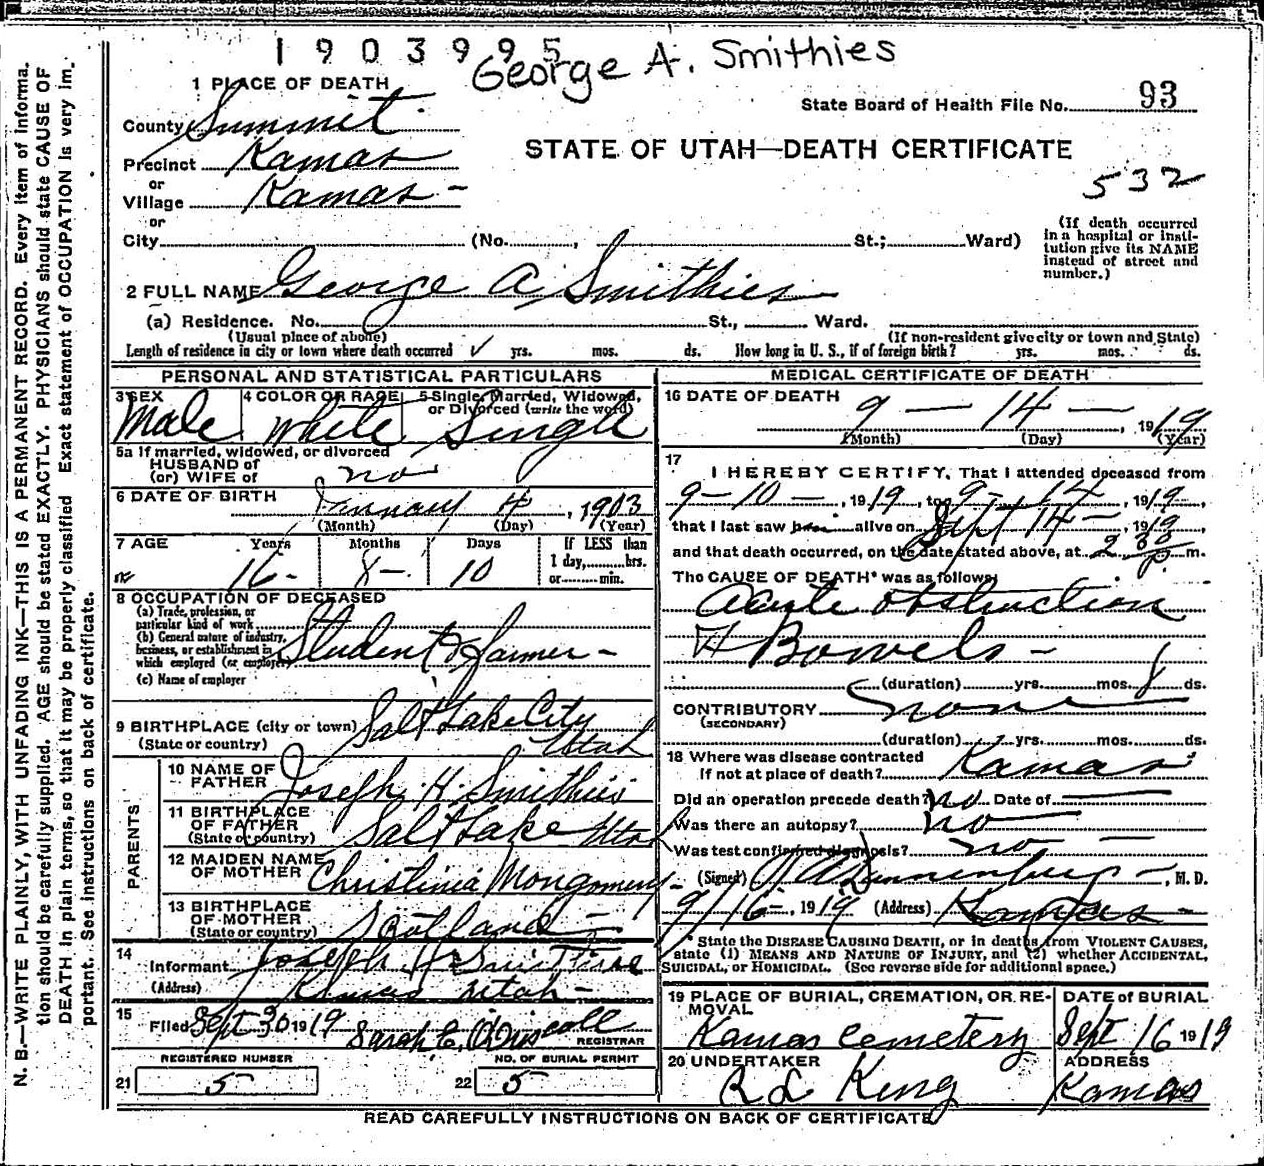 1903995 George A. Smithies
1 PLACE OF DEATH
State Board of Health File No. 93
County Summit
STATE OF UTAH—DEATH CERTIFICATE
Precinct Kamas
532
or
Village Kamas -
or
City (No. , St.; Ward)
(If death occurred
in a hospital or insti-
tution give its NAME
instead of street and
number.)
2 FULL NAME George A Smithies
(a) Residence. No. St., Ward.
(Usual place of abode) (If non-resident give city or town and State)
Length of residence in city or town where death occurred ✓ yrs. mos. ds. How long in U. S., if of foreign birth? yrs. mos. ds.
PERSONAL AND STATISTICAL PARTICULARS
3 SEX 4 COLOR OR RACE 5 Single, Married, Widowed,
or Divorced (write the word)
Male White Single
5a If married, widowed, or divorced
HUSBAND of
(or) WIFE of no
6 DATE OF BIRTH January 4, 1903
(Month) (Day) (Year)
7 AGE Years Months Days If LESS than
1 day, hrs.
or min.
16- 8- 10
8 OCCUPATION OF DECEASED
(a) Trade, profession, or
particular kind of work
(b) General nature of industry,
business, or establishment in
which employed (or employer) Student & Farmer -
(c) Name of employer
9 BIRTHPLACE (city or town) Salt Lake City
(State or country) Utah
PARENTS
10 NAME OF
FATHER Joseph H. Smithies
11 BIRTHPLACE
OF FATHER
(State or country) Salt Lake Utah
12 MAIDEN NAME
OF MOTHER Christinia Montgomery
13 BIRTHPLACE
OF MOTHER
(State or country) Scotland -
14
Informant Joseph H Smithies
(Address) Kamas Utah -
15
Filed Sept 30 1919 Sarah E.
REGISTRAR
REGISTERED NUMBER NO. OF BURIAL PERMIT
21 5 22 5
MEDICAL CERTIFICATE OF DEATH
16 DATE OF DEATH
9 - 14 -, 1919
(Month) (Day) (Year)
17
I HEREBY CERTIFY, That I attended deceased from
9-10-, 1919, to 9-14, 1919,
that I last saw him alive on Sept 14-, 1919,
and that death occurred, on the date stated above, at 2 30 P. m.
The CAUSE OF DEATH* was as follows:
Acute obstruction
of Bowels -
(duration) yrs. mos. ds.
CONTRIBUTORY none
(SECONDARY)
(duration) yrs. mos. ds.
18 Where was disease contracted
If not at place of death? Kamas
Did an operation precede death? no Date of
Was there an autopsy? no
Was test confirmed diagnosis? no -
(Signed) , M. D.
9/16-, 1919 (Address) Kamas -
* State the DISEASE CAUSING DEATH, or in deaths from VIOLENT CAUSES,
state (1) MEANS AND NATURE OF INJURY, and (2) whether ACCIDENTAL,
SUICIDAL, or HOMICIDAL. (See reverse side for additional space.)
19 PLACE OF BURIAL, CREMATION, OR RE-
MOVAL
Kamas Cemetery
DATE of BURIAL
Sept 16 1919
20 UNDERTAKER
R L King
ADDRESS
Kamas
READ CAREFULLY INSTRUCTIONS ON BACK OF CERTIFICATE
N. B.—WRITE PLAINLY, WITH UNFADING INK—THIS IS A PERMANENT RECORD. Every item of informa-
tion should be carefully supplied. AGE should be stated EXACTLY. PHYSICIANS should state CAUSE OF
DEATH in plain terms, so that it may be properly classified Exact statement of OCCUPATION is very im-
portant. See instructions on back of certificate.